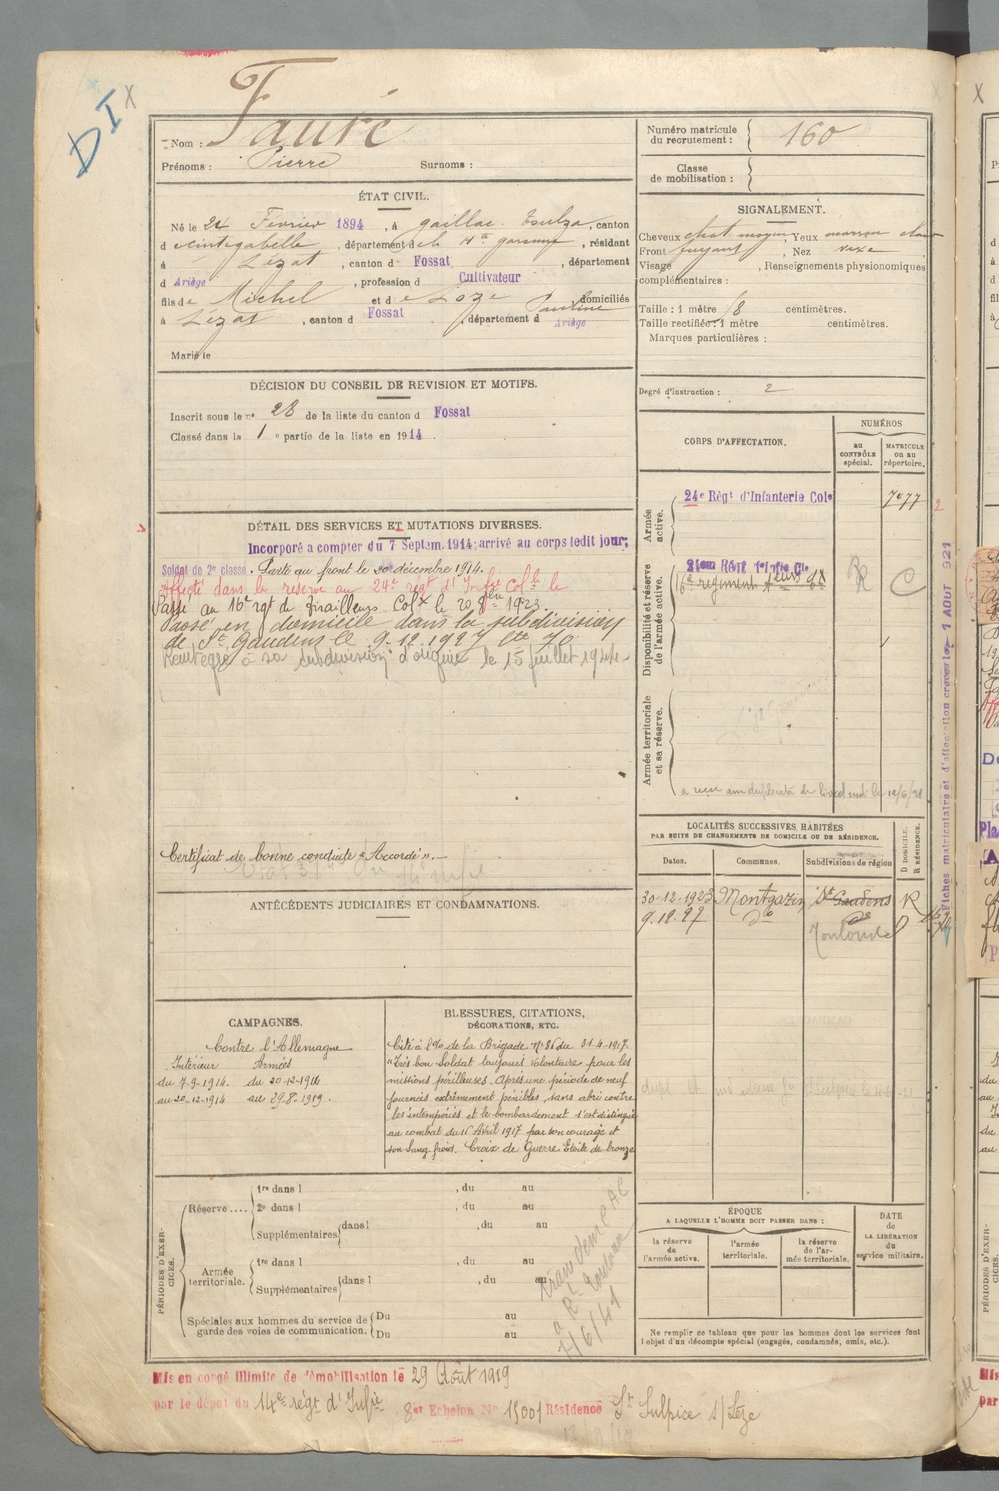 DI X
Nom : Fauré
Prénoms : Pierre Surnoms :
Numéro matricule du recrutement : 160
Classe de mobilisation :
ÉTAT CIVIL.
Né le 24 Février 1894, à gaillac Toulza, canton
d cintegabelle, département de la Hte garonne, résidant
à Lézat, canton d Fossat, département
d Ariège, profession d Cultivateur
fils de Michel et de Loze Pauline domiciliés
à Lézat, canton d Fossat, département d Ariège
Marié le
SIGNALEMENT.
Cheveux chat. moyen, Yeux marron clair
Front fuyant, Nez vexe
Visage , Renseignements physionomiques
complémentaires :
Taille : 1 mètre 8 centimètres.
Taille rectifiée : 1 mètre centimètres.
Marques particulières :
Degré d'instruction : 2
DÉCISION DU CONSEIL DE REVISION ET MOTIFS.
Inscrit sous le n° 28 de la liste du canton d Fossat
Classé dans la 1e partie de la liste en 1914.
CORPS D'AFFECTATION.
NUMÉROS
au CONTRÔLE spécial.
MATRICULE OU AU répertoire.
Armée active.
24e Régt d'Infanterie Cole 7477 2
Disponibilité et réserve de l'armée active.
16e régiment R C
Armée territoriale et sa réserve.
DÉTAIL DES SERVICES ET MUTATIONS DIVERSES.
Incorporé a compter du 7 Septem. 1914; arrivé au corps ledit jour;
Soldat de 2e classe. Parti au front le 20 décembre 1914.
Affecté dans la réserve au 24e regt d'Infie Colle le
Passé au 16e rgt de Tirailleurs Colx le 20 1923
Passé en domicile dans la subdivision
de St Gaudens le 9.12.1927 70
Réintégré à sa subdivision d'origine le 15 juillet 1944
Certificat de bonne conduite "Accordé".
Fiches matriculaire et d'affectation créées le 1 AOUT 921
ANTÉCÉDENTS JUDICIAIRES ET CONDAMNATIONS.
LOCALITÉS SUCCESSIVES HABITÉES
PAR SUITE DE CHANGEMENTS DE DOMICILE OU DE RÉSIDENCE.
Dates. Communes. Subdivisions de région D DOMICILE. R RÉSIDENCE.
30-12-1923 Montgazin St Gaudens R
9.12.27 do do D
Toulouse
CAMPAGNES.
Contre l'Allemagne
Intérieur Armées
du 7-9-1914. du 20-12-1914
au 20-12-1914 au 29-8-1919.
BLESSURES, CITATIONS,
DÉCORATIONS, ETC.
Cité à l'O. de la Brigade N° 86 du 31-4-1917.
"Très bon Soldat toujours volontaire pour les
missions périlleuses. Après une période de neuf
journées extrêmement pénibles, sans abri contre
les intempéries et le bombardement s'est distingué
au combat du 16 Avril 1917 par son courage et
son Sang froid. Croix de Guerre Etoile de bronze
PÉRIODES D'EXERCICES.
Réserve.... 1re dans l , du au
2e dans l , du au
Supplémentaires dans l , du au
Armée territoriale. 1re dans l , du au
Supplémentaires dans l , du au
Spéciales aux hommes du service de garde des voies de communication. Du au
Du au
7/6/41
ÉPOQUE
A LAQUELLE L'HOMME DOIT PASSER DANS :
la réserve de l'armée active. l'armée territoriale. la réserve de l'armée territoriale.
DATE de LA LIBÉRATION du service militaire.
Ne remplir ce tableau que pour les hommes dont les services font
l'objet d'un décompte spécial (engagés, condamnés, omis, etc.).
Mis en congé illimité de démobilisation le 29 Août 1919
par le dépôt du 14e régt d'Infie 8er Echelon No 15001 Résidence St Sulpice s/Lèze